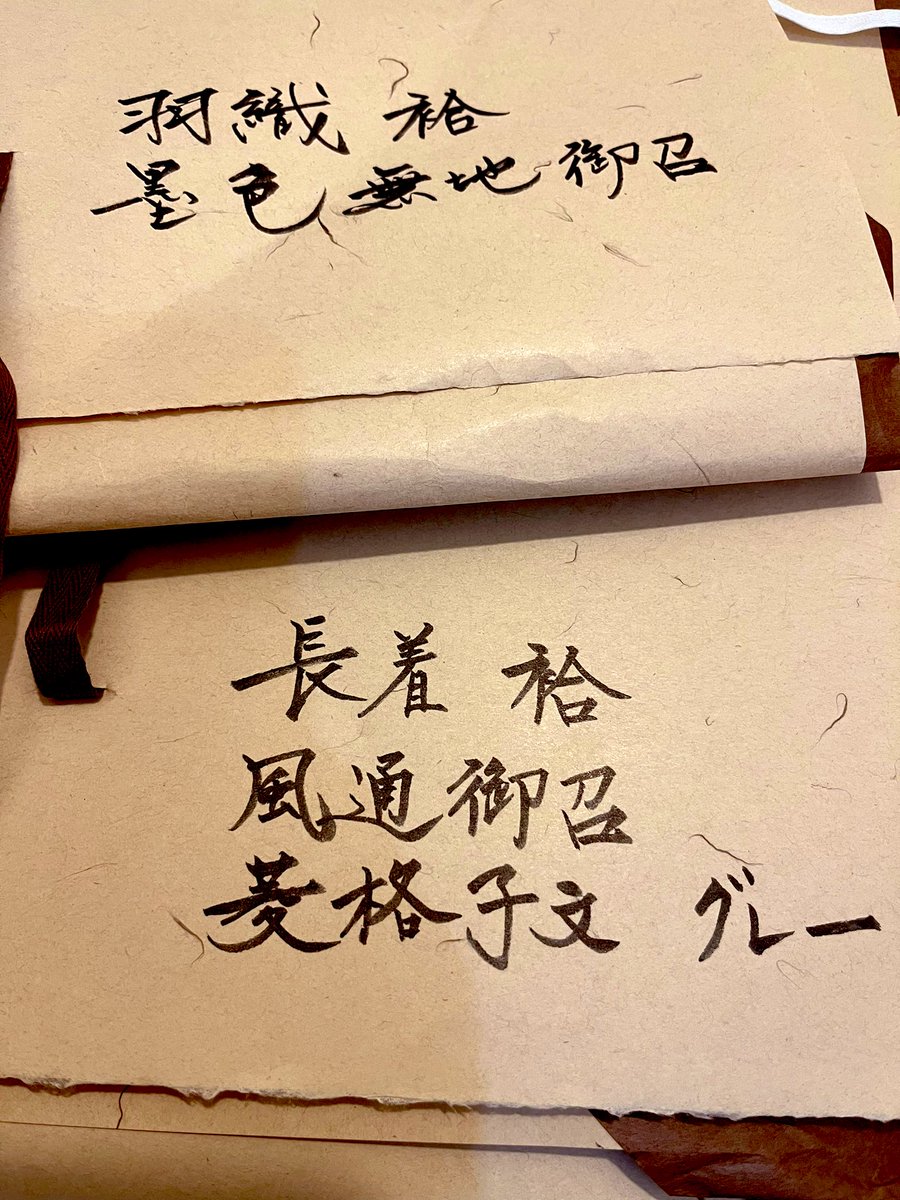 羽織 袷
墨色無地御召
長着 袷
風通御召
菱格子文 グレー